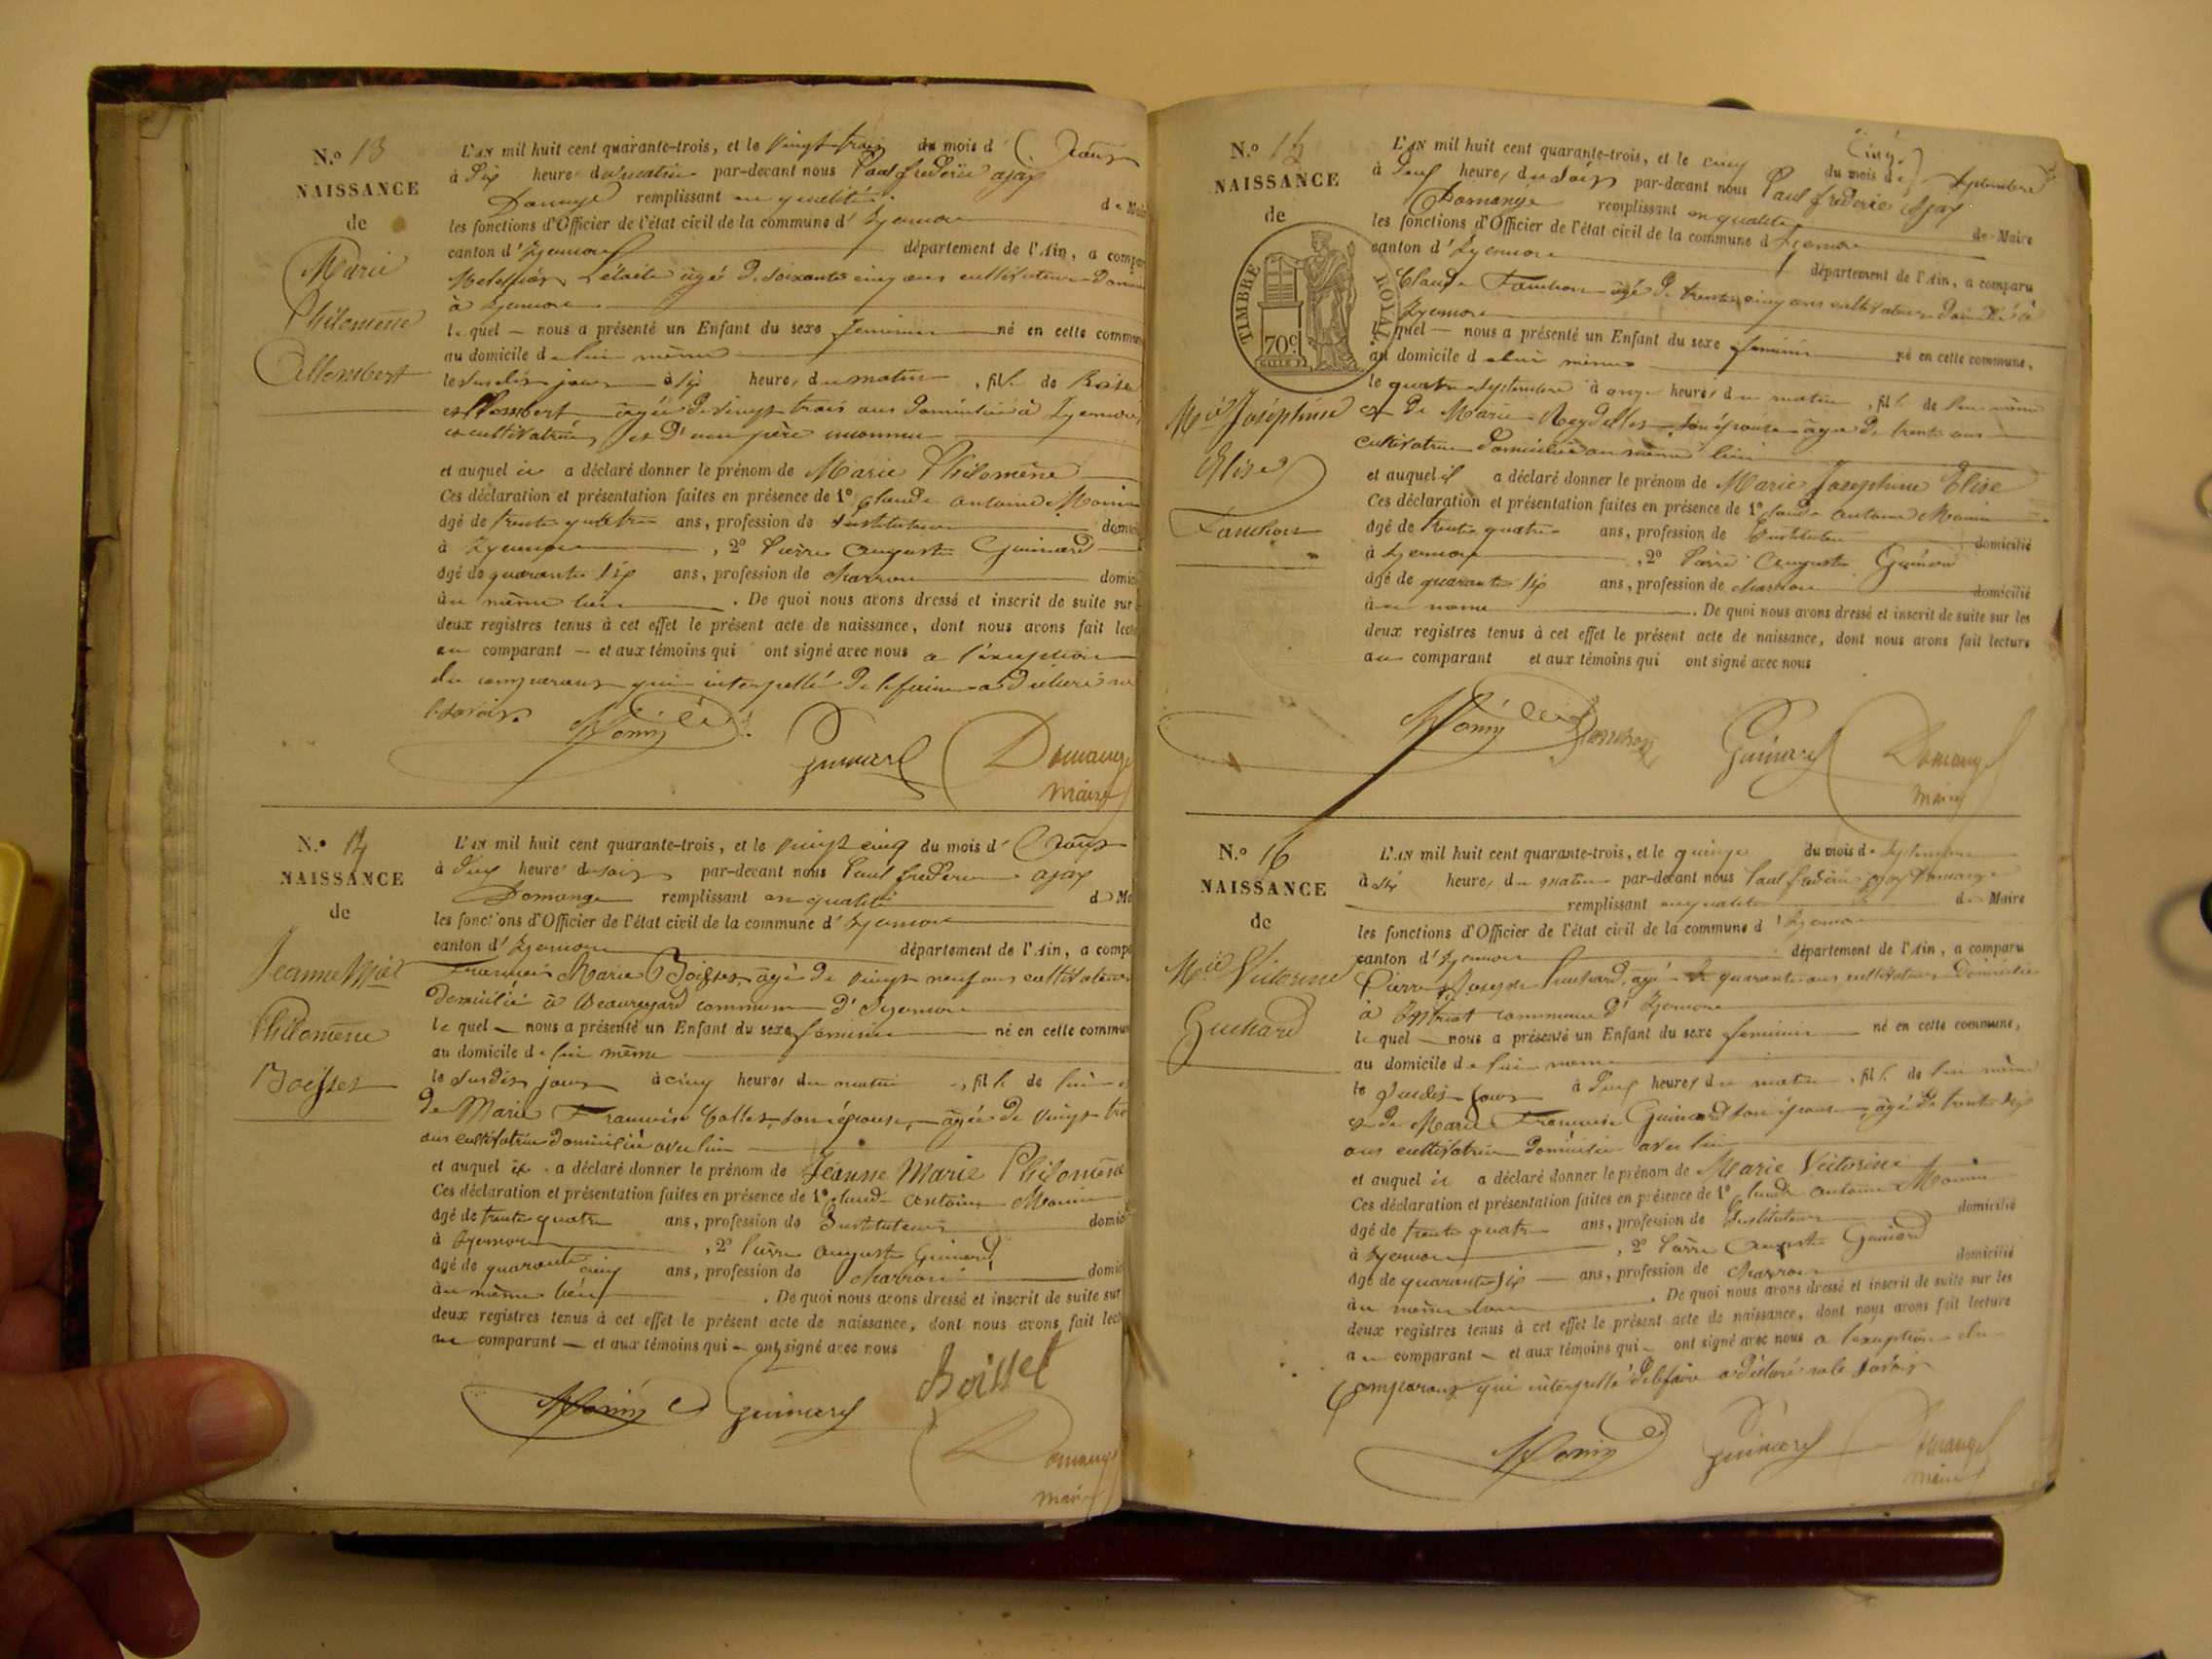 N.º 13
NAISSANCE
de
Marie
Philomène
Allombert
L'AN mil huit cent quarante-trois, et le vingt trois du mois d' Août
à dix heures du matin par-devant nous Paul frédéric ajax
Domange remplissant en qualité de Mai
les fonctions d'Officier de l'état civil de la commune d' Izernore
canton d'Izernore département de l'Ain, a compa
âgé de soixante cinq ans cultivateur Domi
à Izernore
lequel nous a présenté un Enfant du sexe feminin né en cette commun
au domicile de lui même
le susdis jour à six heures du matin, fille de Rose
Allombert âgée de vingt trois ans domiciliée à Izernore,
cultivatrice, et d'un père inconnu
et auquel il a déclaré donner le prénom de Marie Philomène
Ces déclaration et présentation faites en présence de 1º Claude antoine Monin
âgé de trente quatre ans, profession de Instituteur domici
à Izernore, 2º Pierre Auguste Guinard
âgé de quarante six ans, profession de charron domic
au même lieu. De quoi nous avons dressé et inscrit de suite sur
deux registres tenus à cet effet le présent acte de naissance, dont nous avons fait lect
au comparant et aux témoins qui ont signé avec nous a l'exception
du comparant qui interpellé de le faire a déclaré ne
le savoir.
Monin Guinard Domange
maire
N.º 14
NAISSANCE
de
Jeanne Mie
Philomène
Boisset
L'AN mil huit cent quarante-trois, et le vingt cinq du mois d' Août
à deux heures du soir par-devant nous Paul frederic ajax
Domange remplissant en qualité de Ma
les fonctions d'Officier de l'état civil de la commune d' Izernore
canton d'Izernore département de l'Ain, a compa
Marie Boisset, âgé de vingt neuf ans cultivateur
domicilié à Beauregard commune d'Izernore
lequel nous a présenté un Enfant du sexe feminin né en cette commun
au domicile de lui même
le susdis jour à cinq heures du matin, fille de lui et
de Marie Françoise Collet, son épouse, âgée de vingt tro
ans cultivatrice domiciliée avec lui
et auquel il a déclaré donner le prénom de Jeanne Marie Philomène
Ces déclaration et présentation faites en présence de 1º Claude Antoine Monin
âgé de trente quatre ans, profession de Instituteur domici
à Izernore, 2º Pierre Auguste Guinard
âgé de quarante cinq ans, profession de charron domic
au même lieu. De quoi nous avons dressé et inscrit de suite sur
deux registres tenus à cet effet le présent acte de naissance, dont nous avons fait lect
au comparant et aux témoins qui ont signé avec nous
Monin Guinard Boisset
Domange
maire
N.º 15
NAISSANCE
de
TIMBRE ROYAL
70c
Mie Joséphine
Elise
Fanchon
L'AN mil huit cent quarante-trois, et le cinq du mois de Septembre
à deux heures du soir par-devant nous Paul frédéric Ajax
Domange remplissant en qualité de Maire
les fonctions d'Officier de l'état civil de la commune d'Izernore
canton d'Izernore département de l'Ain, a comparu
Claude Fanchon âgé de trente cinq ans cultivateur domicilié à
Izernore
lequel nous a présenté un Enfant du sexe feminin né en cette commune,
au domicile de lui même
le quatre Septembre à onze heures du matin, fille de lui même
et de Marie Reydellet son épouse âgée de trente ans
cultivatrice domiciliée au même lieu
et auquel il a déclaré donner le prénom de Marie Josephine Elise
Ces déclaration et présentation faites en présence de 1º Claude Antoine Monin
âgé de trente quatre ans, profession de Instituteur domicilié
à Izernore, 2º Pierre Auguste Guinard
âgé de quarante six ans, profession de charron domicilié
au même. De quoi nous avons dressé et inscrit de suite sur les
deux registres tenus à cet effet le présent acte de naissance, dont nous avons fait lecture
au comparant et aux témoins qui ont signé avec nous
Monin Fanchon Guinard Domange
maire
N.º 16
NAISSANCE
de
Mie Victorine
Guichard
L'AN mil huit cent quarante-trois, et le quinze du mois de Septembre
à six heures du matin par-devant nous Paul frédéric ajax Domange
remplissant en qualité de Maire
les fonctions d'Officier de l'état civil de la commune d'Izernore
canton d'Izernore département de l'Ain, a comparu
Pierre Joseph Guichard, âgé de quarante ans cultivateur domicilié
à commune d'Izernore
lequel nous a présenté un Enfant du sexe feminin né en cette commune,
au domicile de lui même
le susdis jour à deux heures du matin, fille de lui même
et de Marie Françoise Guinard son épouse, âgée de trente six
ans cultivatrice domiciliée avec lui
et auquel il a déclaré donner le prénom de Marie Victorine
Ces déclaration et présentation faites en présence de 1º Claude Antoine Monin
âgé de trente quatre ans, profession de Instituteur domicilié
à Izernore, 2º Pierre Auguste Guinard
âgé de quarante six ans, profession de charron domicilié
au même lieu. De quoi nous avons dressé et inscrit de suite sur les
deux registres tenus à cet effet le présent acte de naissance, dont nous avons fait lecture
au comparant et aux témoins qui ont signé avec nous a l'exception du
Comparant qui interpellé de le faire a déclaré ne le savoir
Monin Guinard Domange
maire